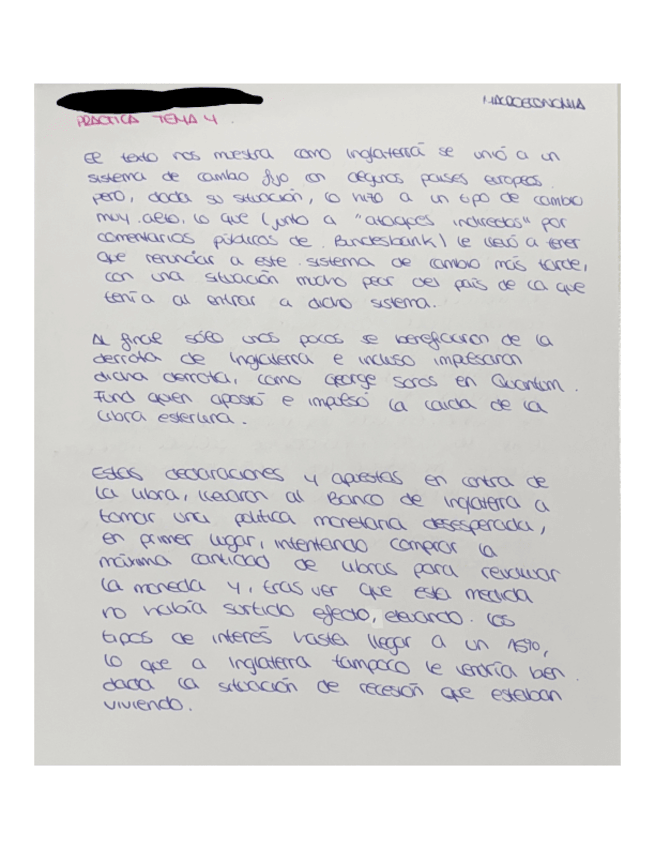 MACROECONOMIA
PRÁCTICA TEMA 4.
El texto nos muestra como Inglaterra se unió a un
sistema de cambio fijo con algunos países europeos
pero, dada su situación, lo hizo a un tipo de cambio
muy alto, lo que (junto a "ataques indirectos" por
comentarios públicos de Bundesbank) le llevó a tener
que renunciar a este sistema de cambio más tarde,
con una situación mucho peor del país de la que
tenía al entrar a dicho sistema.
Al final sólo unos pocos se beneficiaron de la
derrota de Inglaterra e incluso impulsaron
dicha derrota, como George Soros en Quantum
Fund quien apostó e impulsó la caida de la
libra esterlina.
Estas declaraciones y apuestas en contra de
la libra, llevaron al Banco de Inglaterra a
tomar una política monetaria desesperada,
en primer lugar, intentando comprar la
máxima cantidad de libras para revaluar
la moneda y, tras ver que esta medida
no había surtido efecto, elevando los
tipos de interés hasta llegar a un 15%,
lo que a Inglaterra tampoco le vendría bien
dada la situación de recesión que estaban
viviendo.